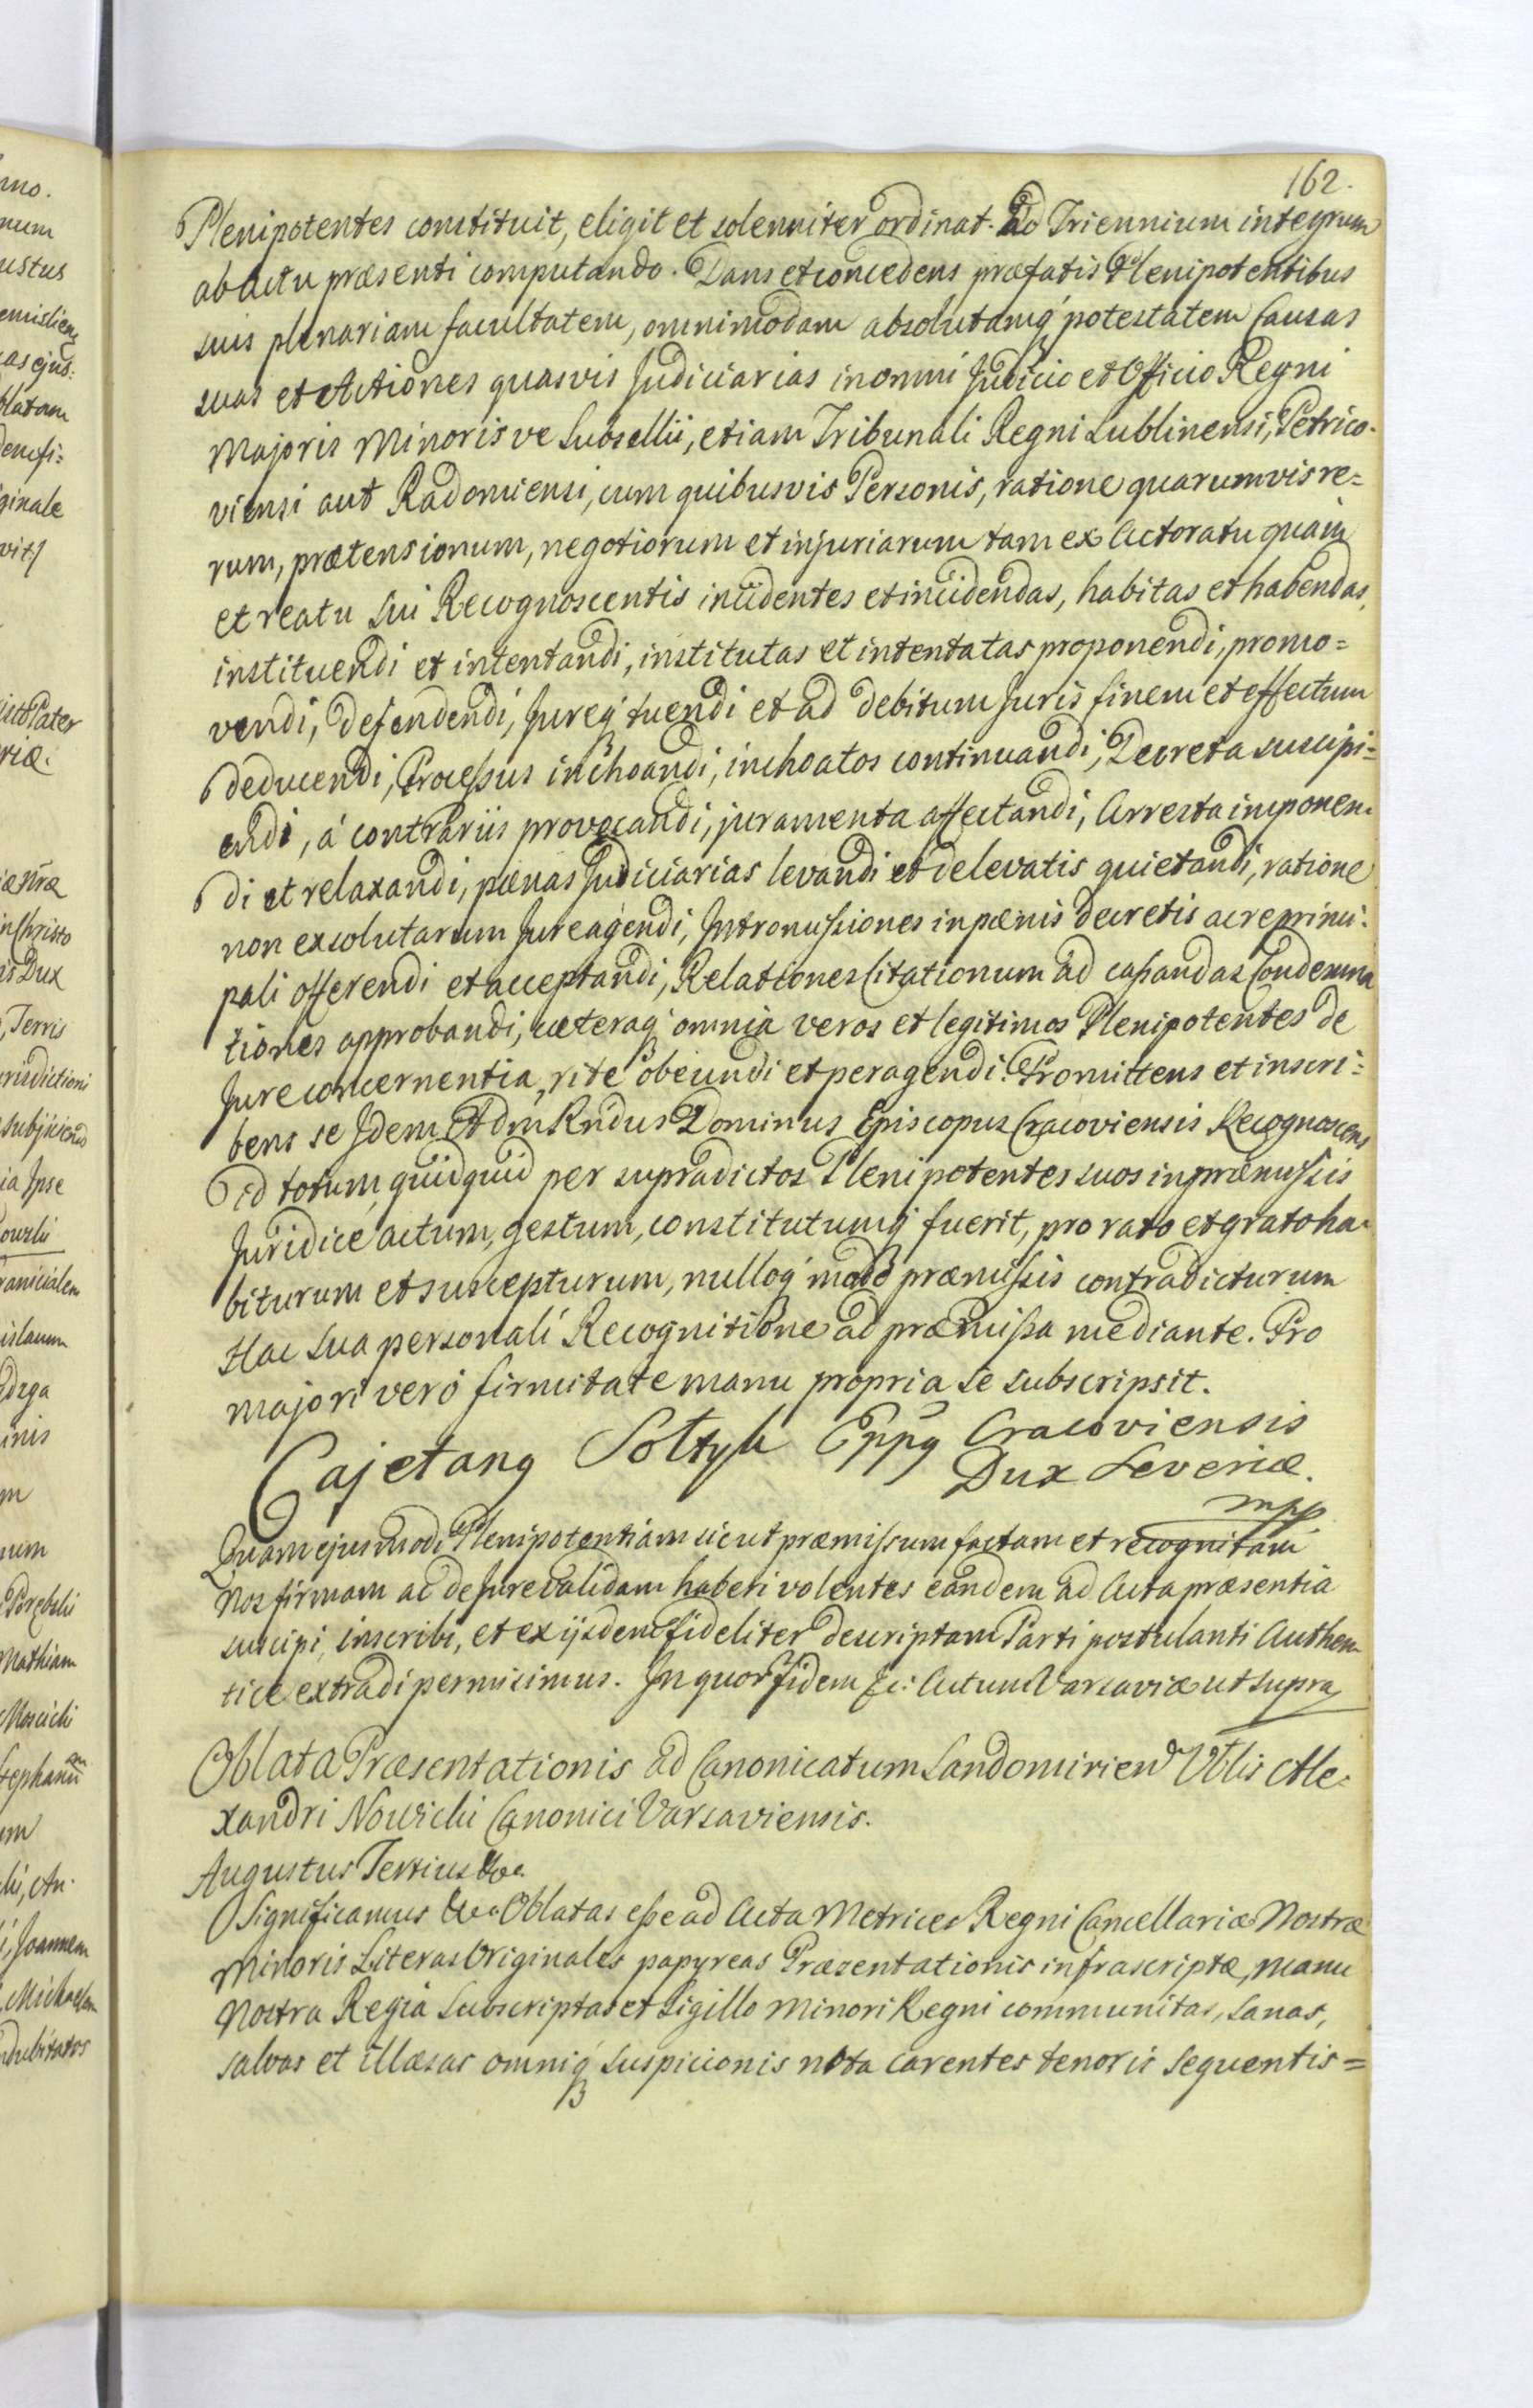 162.
Plenipotentes constituit, eligit et solenniter ordinat. Ad Triennium integrum
ab actu præsenti computando. Dans et concedens præfatis Plenipotentibus
suis plenariam facultatem, omnimodam absolutamq́ potestatem Causas
suas et Actiones quasvis Judiciarias in omni Judicio et Officio Regni
Majoris Minorisve Subsellii, etiam Tribunali Regni Lublinensi, Petrico-
viensi aut Radomiensi, cum quibusvis Personis, ratione quarumvis re=
rum, prætensionum, negotiorum et injuriarum tam ex Actoratu quàm
et reatu sui Recognoscentis incidentes et incidendas, habitas et habendas,
instituendi et intentandi, institutas et intentatas proponendi, promo=
vendi, defendendi, Jureq́ tuendi et ad debitum Juris finem et effectum
deducendi, Processus inchoandi, inchoatos continuandi, Decreta suscipi=
endi, á contrariis provocandi, juramenta affectandi, Arresta imponen-
di et relaxandi, pœnas Judiciarias levandi et de levatis quietandi, ratione
non exsolutarum Jure agendi, Intromissiones in pœnis decretis ac re princi:
pali offerendi et acceptandi, Relationes Citationum ad cassandas Condemna
tiones approbandi, cæteraq́ omnia veros et legitimos Plenipotentes de
Jure concernentia, rité obeundi et peragendi. Promittens et inscri=
bens se Idem Adm Rndus Dominus Episcopus Cracoviensis Recognoscens
id totum, quidquid per supradictos Plenipotentes suos in præmissis
Juridice actum, gestum, constitutumq́ fuerit, pro rato et grato ha-
biturum et suscepturum, nulloq́ modo præmissis contradicturum
Hac sua personali Recognitione ad præmissa mediante. Pro
majori veró firmitate manu propria se subscripsit.
Cajetanq Sołtyk Eppq Cracoviensis
Dux Severiæ.
mpp
Quam ejusmodi Plenipotentiam sicut præmissum factam et recognitam
Nos firmam ac de Jure validam haberi volentes eandem ad Acta præsentia
suscipi, inscribi, et ex ijsdem fideliter descriptam Parti postulanti Authen
tice extradi permisimus. In quor fidem &c: Actum Varsaviæ ut supra
Oblata Præsentationis ad Canonicatum Sandomirien Vblis Ale-
xandri Nowicki Canonici Varsaviensis.
Augustus Tertius &c.
Significamus &c. Oblatas esse ad Acta Metrices Regni Cancellariæ Nostræ
Minoris Literas Originales papyreas Præsentationis infrascriptæ, manu
Nostra Regia Subscriptas et Sigillo Minori Regni communitas, sanas,
salvas et illæsas omniq́ suspicionis nota carentes tenoris sequentis =